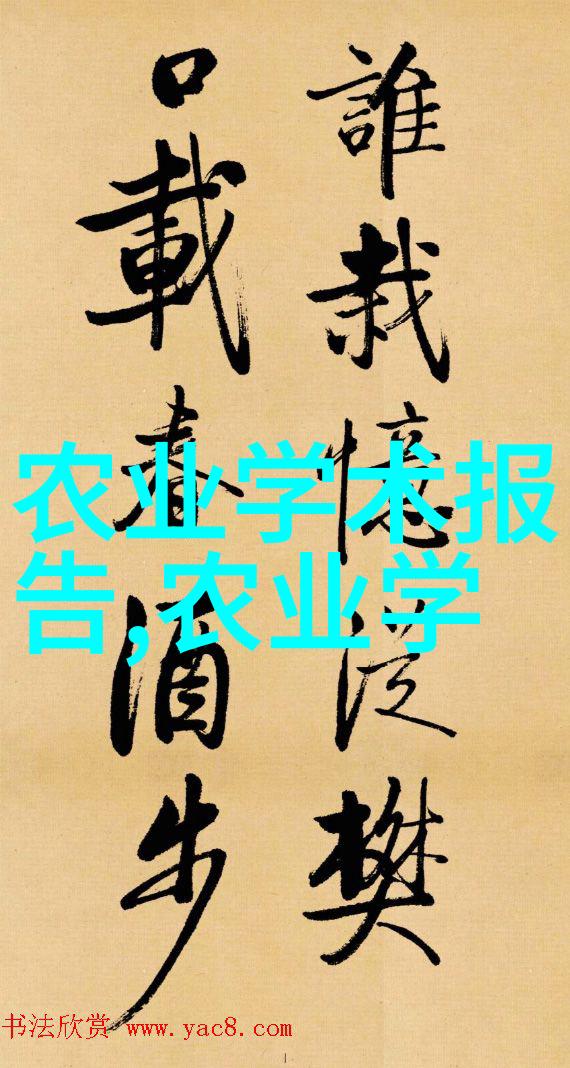 誰栽憶泛樊
口載春酒步
农业学术报
告,农业学
书法欣赏 www.yac8.com